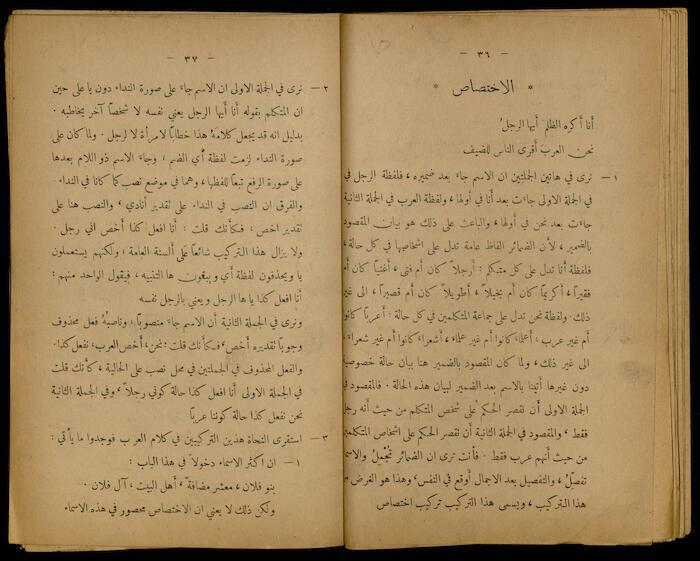 — ٣٦ —
* الاختصاص *
أنا أكره الظلم أيها الرجلُ
نحن العربَ أقرى الناس للضيف
١ — نرى في هاتين الجملتين ان الاسم جاء بعد ضميره، فلفظة الرجل في
في الجملة الاولى جاءت بعد أنا في أولها، ولفظة العرب في الجملة الثانية
جاءت بعد نحن في أولها، والباعث على ذلك هو بيان المقصود
بالضمير، لأن الضمائر الفاظ عامة تدل على اشخاصها في كل حالة،
فلفظة أنا تدل على كل متكلم: أرجلاً كان أم فتى، أغنياً كان أم
فقيراً، أكريماً كان أم بخيلاً، أطويلاً كان أم قصيراً، الى غير
ذلك. ولفظة نحن تدل على جماعة المتكلمين في كل حالة: أعرباً كانوا
أم غير عرب، أعلماء كانوا أم غير علماء، أشعراء كانوا أم غير شعراء،
الى غير ذلك، ولما كان المقصود بالضمير هنا بيان حالة خصوصية
دون غيرها أتينا بالاسم بعد الضمير لبيان هذه الحالة. فالمقصود في
الجملة الاولى أن نقصر الحكم على شخص المتكلم من حيث أنه رجل
فقط، والمقصود في الجملة الثانية أن نقصر الحكم على اشخاص المتكلمين
من حيث أنهم عرب فقط. فأنت ترى ان الضمائر تُجْمِلُ والاسم
تفصلُ، والتفصيل بعد الاجمال أوقع في النفس، وهذا هو الغرض من
هذا التركيب، ويسمى هذا التركيب تركيب اختصاص
— ٣٧ —
٢ — نرى في الجملة الاولى ان الاسم جاء على صورة النداء دون يا على حين
ان المتكلم بقوله أنا أيها الرجل يعني نفسه لا شخصاً آخر يخاطبه.
بدليل انه قد يجعل كلامه هذا خطاباً لامرأة لا لرجل. ولما كان على
صورة النداء لزمت لفظة أي الضم، وجاء الاسم ذو اللام بعدها
على صورة الرفع تبعاً للفظها، وهما في موضع نصب كما كانا في النداء.
والفرق ان النصب في النداء على تقدير أنادي، والنصب هنا على
تقدير اخص، فكأنك قلت: أنا افعل كذا أخص اني رجل.
ولا يزال هذا التركيب شائعاً على ألسنة العامة، ولكنهم يستعملون
يا ويحذفون لفظة أي ويبقون ها التنبيه، فيقول الواحد منهم:
أنا افعل كذا يا ها الرجل ويعني بالرجل نفسه
ونرى في الجملة الثانية أن الاسم جاء منصوباً، وناصبهُ فعل محذوف
وجوباً تقديره أخص، فكأنك قلت: نحن، أخص العرب، نفعل كذا.
والفعل المحذوف في الجملتين في محل نصب على الحالية، كأنك قلت
في الجملة الاولى أنا افعل كذا حالة كوني رجلاً، وفي الجملة الثانية
نحن نفعل كذا حالة كوننا عرباً
٣ — استقرى النحاة هذين التركيبين في كلام العرب فوجدوا ما يأتي:
١ — ان اكثر الاسماء دخولاً في هذا الباب:
بنو فلان، معشر مضافةً، أهل البيت، آل فلان.
ولكن ذلك لا يعني ان الاختصاص محصور في هذه الاسماء